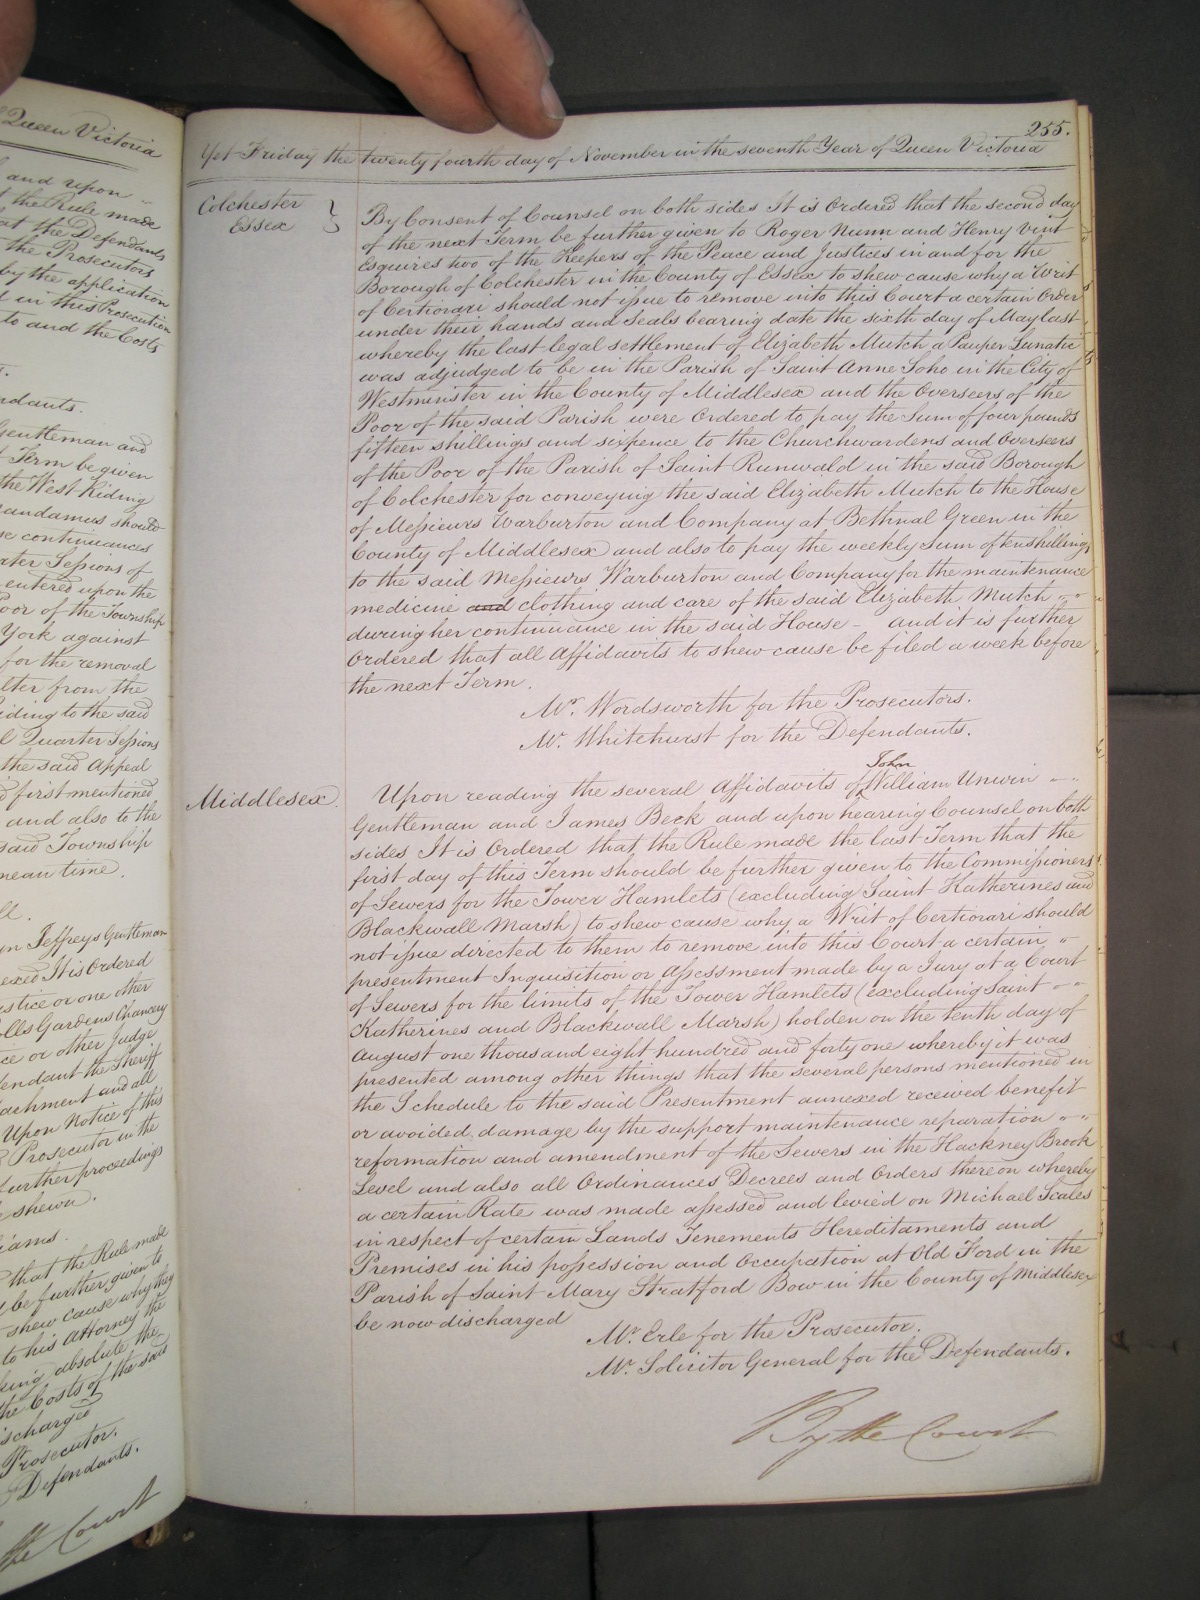 Queen Victoria
and upon
the Rule made
at the Defendants
the Prosecutors
by the application
in this Prosecution
to and the Costs
ndants.
Gentleman and
Term be given
the West Riding
andamus should
se continuances
ter Sessions of
entered upon the
Poor of the Township
York against
for the removal
lter from the
iding to the said
l Quarter Sessions
the said Appeal
first mentioned
and also to the
said Township
mean time.
n Jeffreys Gentleman
exed It is Ordered
stice or one other
olls Gardens Chancery
ce or other Judge
endant the Sheriff
achment and all
Upon Notice of this
Prosecutor in the
further proceedings
shewn.
iams.
that the Rule made
be further given to
shew cause why they
to his Attorney the
king absolute the
the Costs of the said
ischarged
Prosecutor.
Defendants.
the Court
255.
Yet Friday the twenty fourth day of November in the seventh Year of Queen Victoria
Colchester
Essex }
By Consent of Counsel on both sides It is Ordered that the second day
of the next Term be further given to Roger Nunn and Henry Vint
Esquires two of the Keepers of the Peace and Justices in and for the
Borough of Colchester in the County of Essex to shew cause why a Writ
of Certiorari should not issue to remove into this Court a certain Order
under their hands and seals bearing date the sixth day of May last
whereby the last legal settlement of Elizabeth Mutch a Pauper Lunatic
was adjudged to be in the Parish of Saint Anne Soho in the City of
Westminster in the County of Middlesex and the Overseers of the
Poor of the said Parish were Ordered to pay the Sum of four pounds
fifteen shillings and sixpence to the Churchwardens and Overseers
of the Poor of the Parish of Saint Runwald in the said Borough
of Colchester for conveying the said Elizabeth Mutch to the House
of Messieurs Warburton and Company at Bethnal Green in the
County of Middlesex and also to pay the weekly Sum of ten shillings
to the said Messieurs Warburton and Company for the maintenance
medicine and clothing and care of the said Elizabeth Mutch
during her continuance in the said House - and it is further
Ordered that all Affidavits to shew cause be filed a week before
the next Term.
Mr. Wordsworth for the Prosecutors.
Mr. Whitehurst for the Defendants.
Middlesex.
Upon reading the several Affidavits of John William Unwin
Gentleman and James Beck and upon hearing Counsel on both
sides It is Ordered that the Rule made the last Term that the
first day of this Term should be further given to the Commissioners
of Sewers for the Tower Hamlets (excluding Saint Katherines and
Blackwall Marsh) to shew cause why a Writ of Certiorari should
not issue directed to them to remove into this Court a certain
presentment Inquisition or Assessment made by a Jury at a Court
of Sewers for the limits of the Tower Hamlets (excluding Saint
Katherines and Blackwall Marsh) holden on the tenth day of
August one thousand eight hundred and forty one whereby it was
presented among other things that the several persons mentioned in
the Schedule to the said Presentment annexed received benefit
or avoided damage by the support maintenance reparation
reformation and amendment of the Sewers in the Hackney Brook
Level and also all Ordinances Decrees and Orders thereon whereby
a certain Rate was made assessed and levied on Michael Scales
in respect of certain Lands Tenements Hereditaments and
Premises in his possession and Occupation at Old Ford in the
Parish of Saint Mary Stratford Bow in the County of Middlesex
be now discharged
Mr. Erle for the Prosecutor.
Mr. Solicitor General for the Defendants.
By the Court